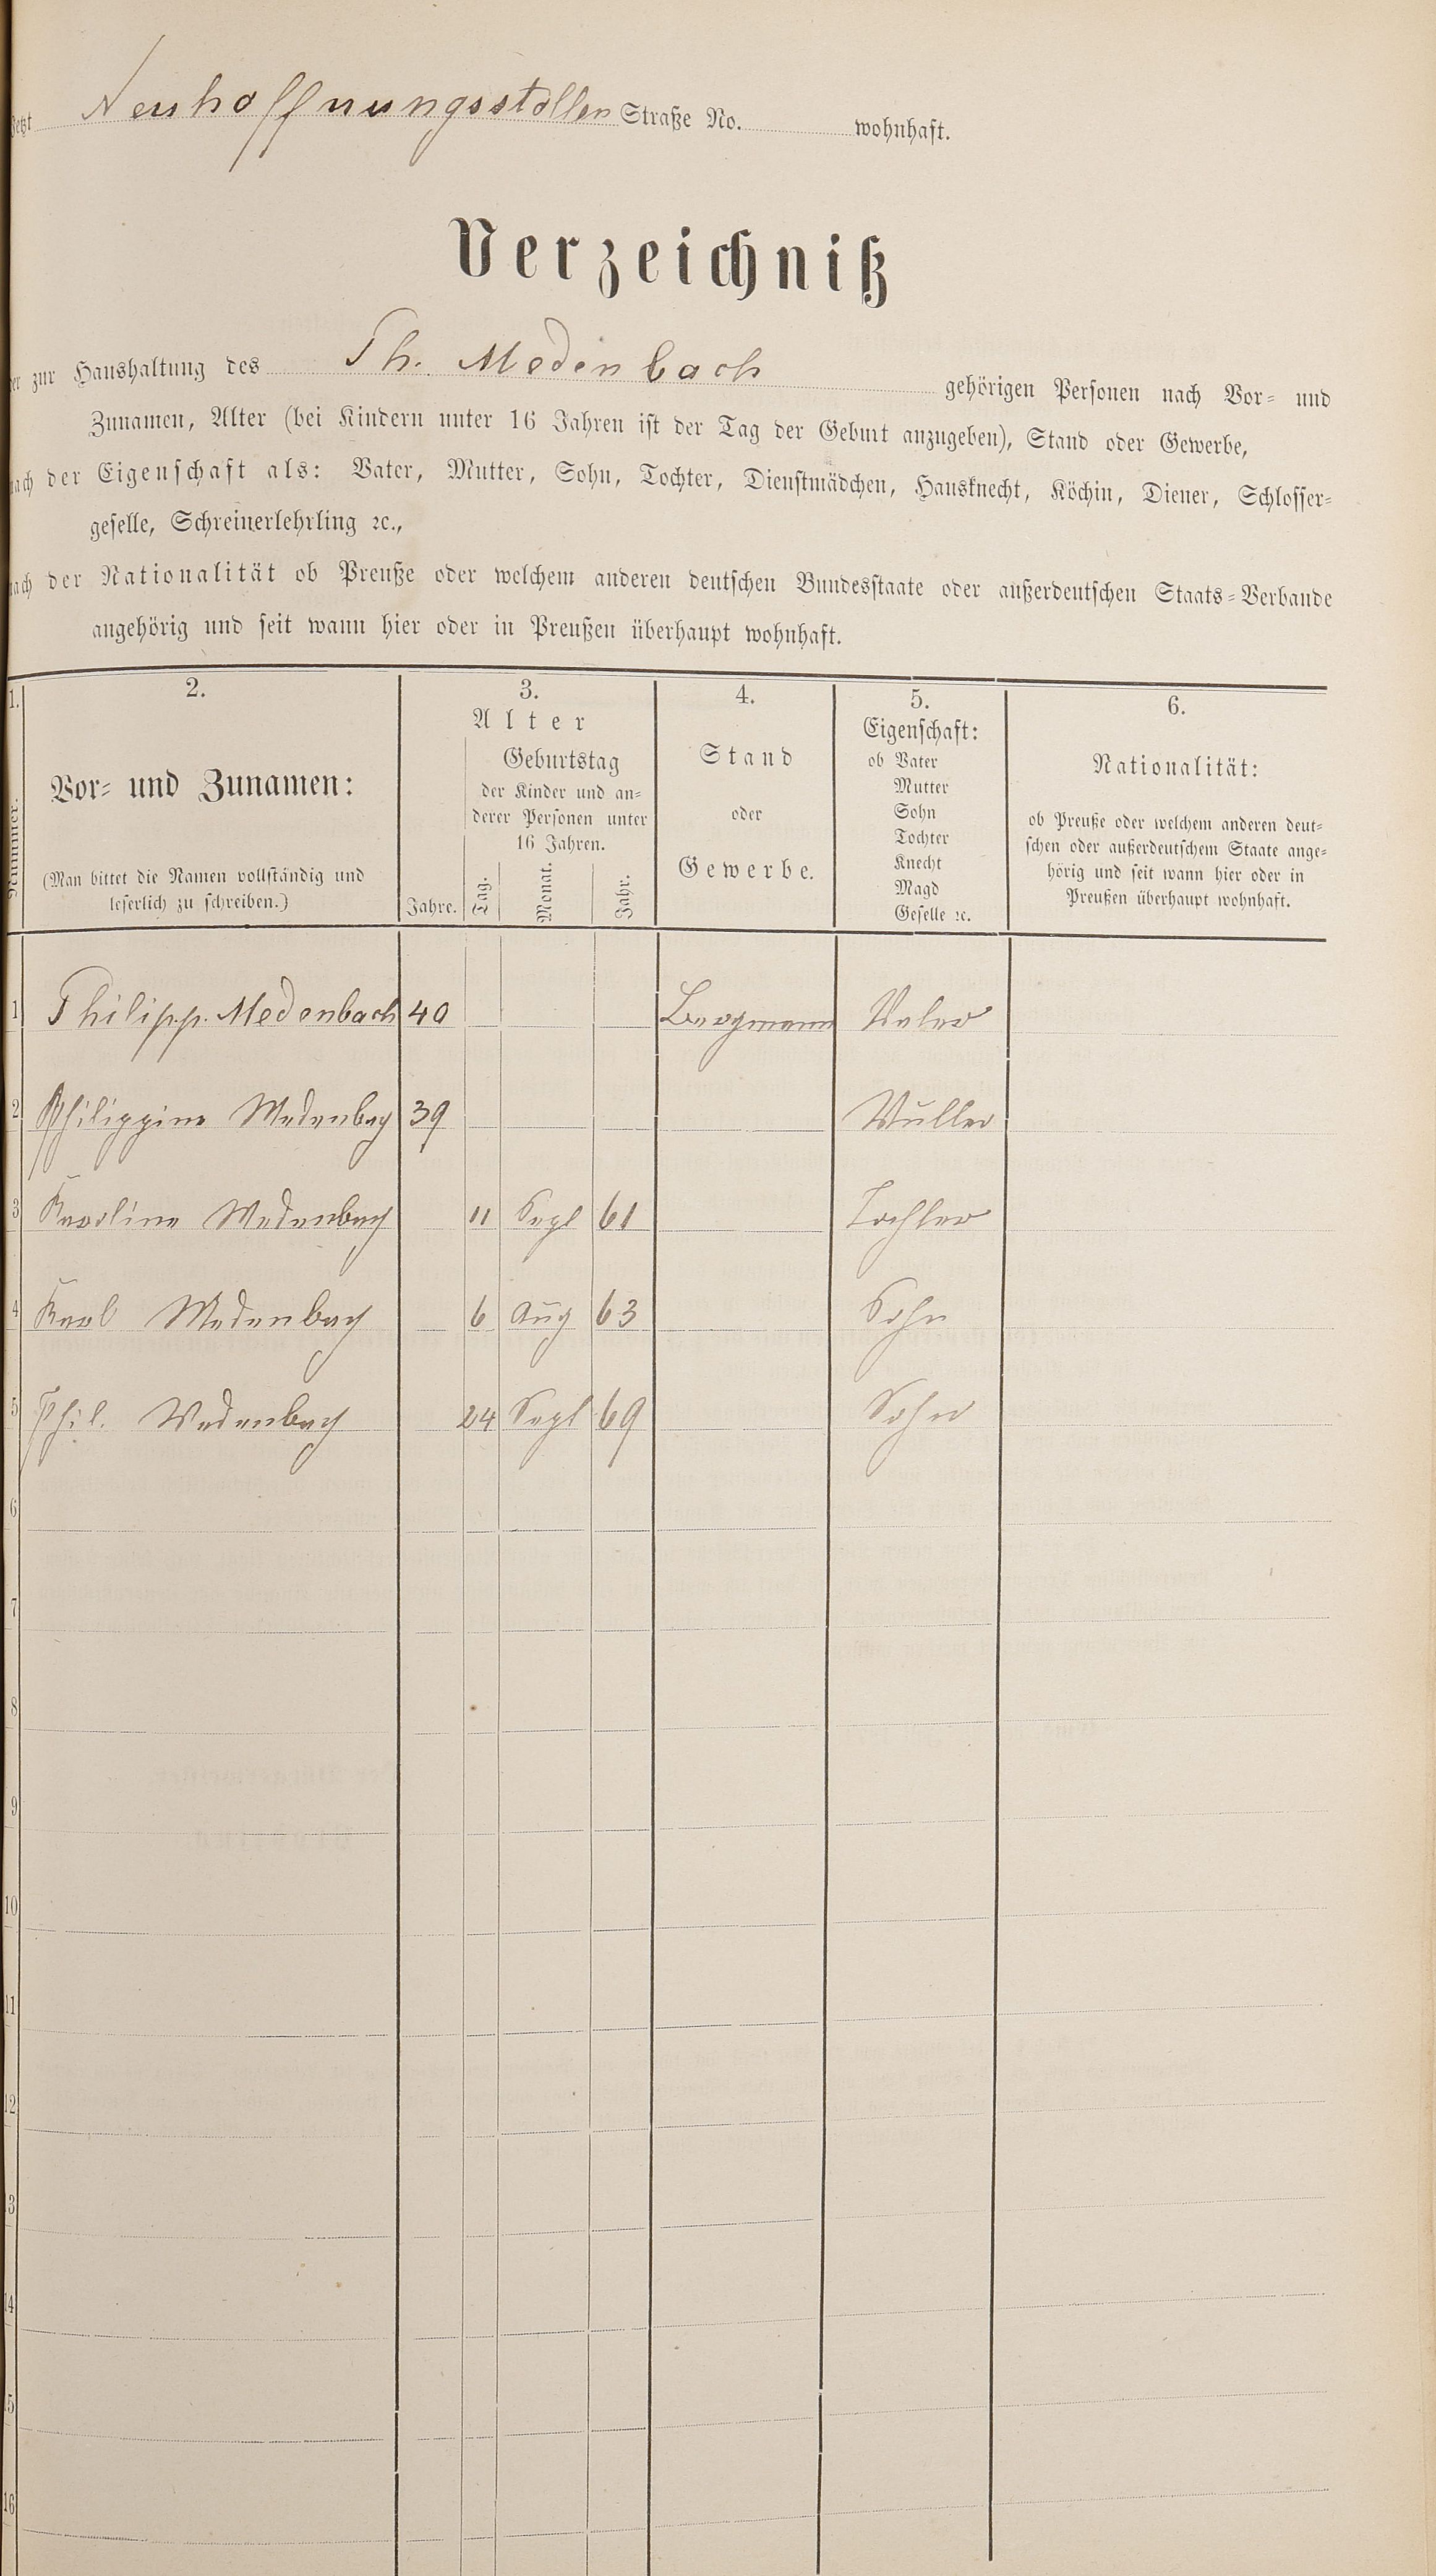 Jetzt Neuhoffnungsstollen Straße No. wohnhaft.
Verzeichniß
der zur Haushaltung des Ph. Medenbach gehörigen Personen nach Vor= und
Zunamen, Alter (bei Kindern unter 16 Jahren ist der Tag der Geburt anzugeben), Stand oder Gewerbe,
nach der Eigenschaft als: Vater, Mutter, Sohn, Tochter, Dienstmädchen, Hausknecht, Köchin, Diener, Schlosser=
geselle, Schreinerlehrling ꝛc.,
nach der Nationalität ob Preuße oder welchem anderen deutschen Bundesstaate oder außerdeutschen Staats=Verbande
angehörig und seit wann hier oder in Preußen überhaupt wohnhaft.
1. 2. 3. 4. 5. 6.
Nummer.
Vor= und Zunamen:
(Man bittet die Namen vollständig und
leserlich zu schreiben.)
Alter
Jahre.
Geburtstag
der Kinder und an=
derer Personen unter
16 Jahren.
Tag. Monat. Jahr.
Stand
oder
Gewerbe.
Eigenschaft:
ob Vater
Mutter
Sohn
Tochter
Knecht
Magd
Geselle ꝛc.
Nationalität:
ob Preuße oder welchem anderen deut=
schen oder außerdeutschem Staate ange=
hörig und seit wann hier oder in
Preußen überhaupt wohnhaft.
1 Philipp. Medenbach 40 Bergmann Vater
2 Philippine Medenbach 39 Mutter
3 Karoline Medenbach 11 Sept 61 Tochter
4 Karl Medenbach 6 Aug 63 Sohn
5 Phil. Medenbach 24 Sept 69 Sohn
6
7
8
9
10
11
12
13
14
15
16